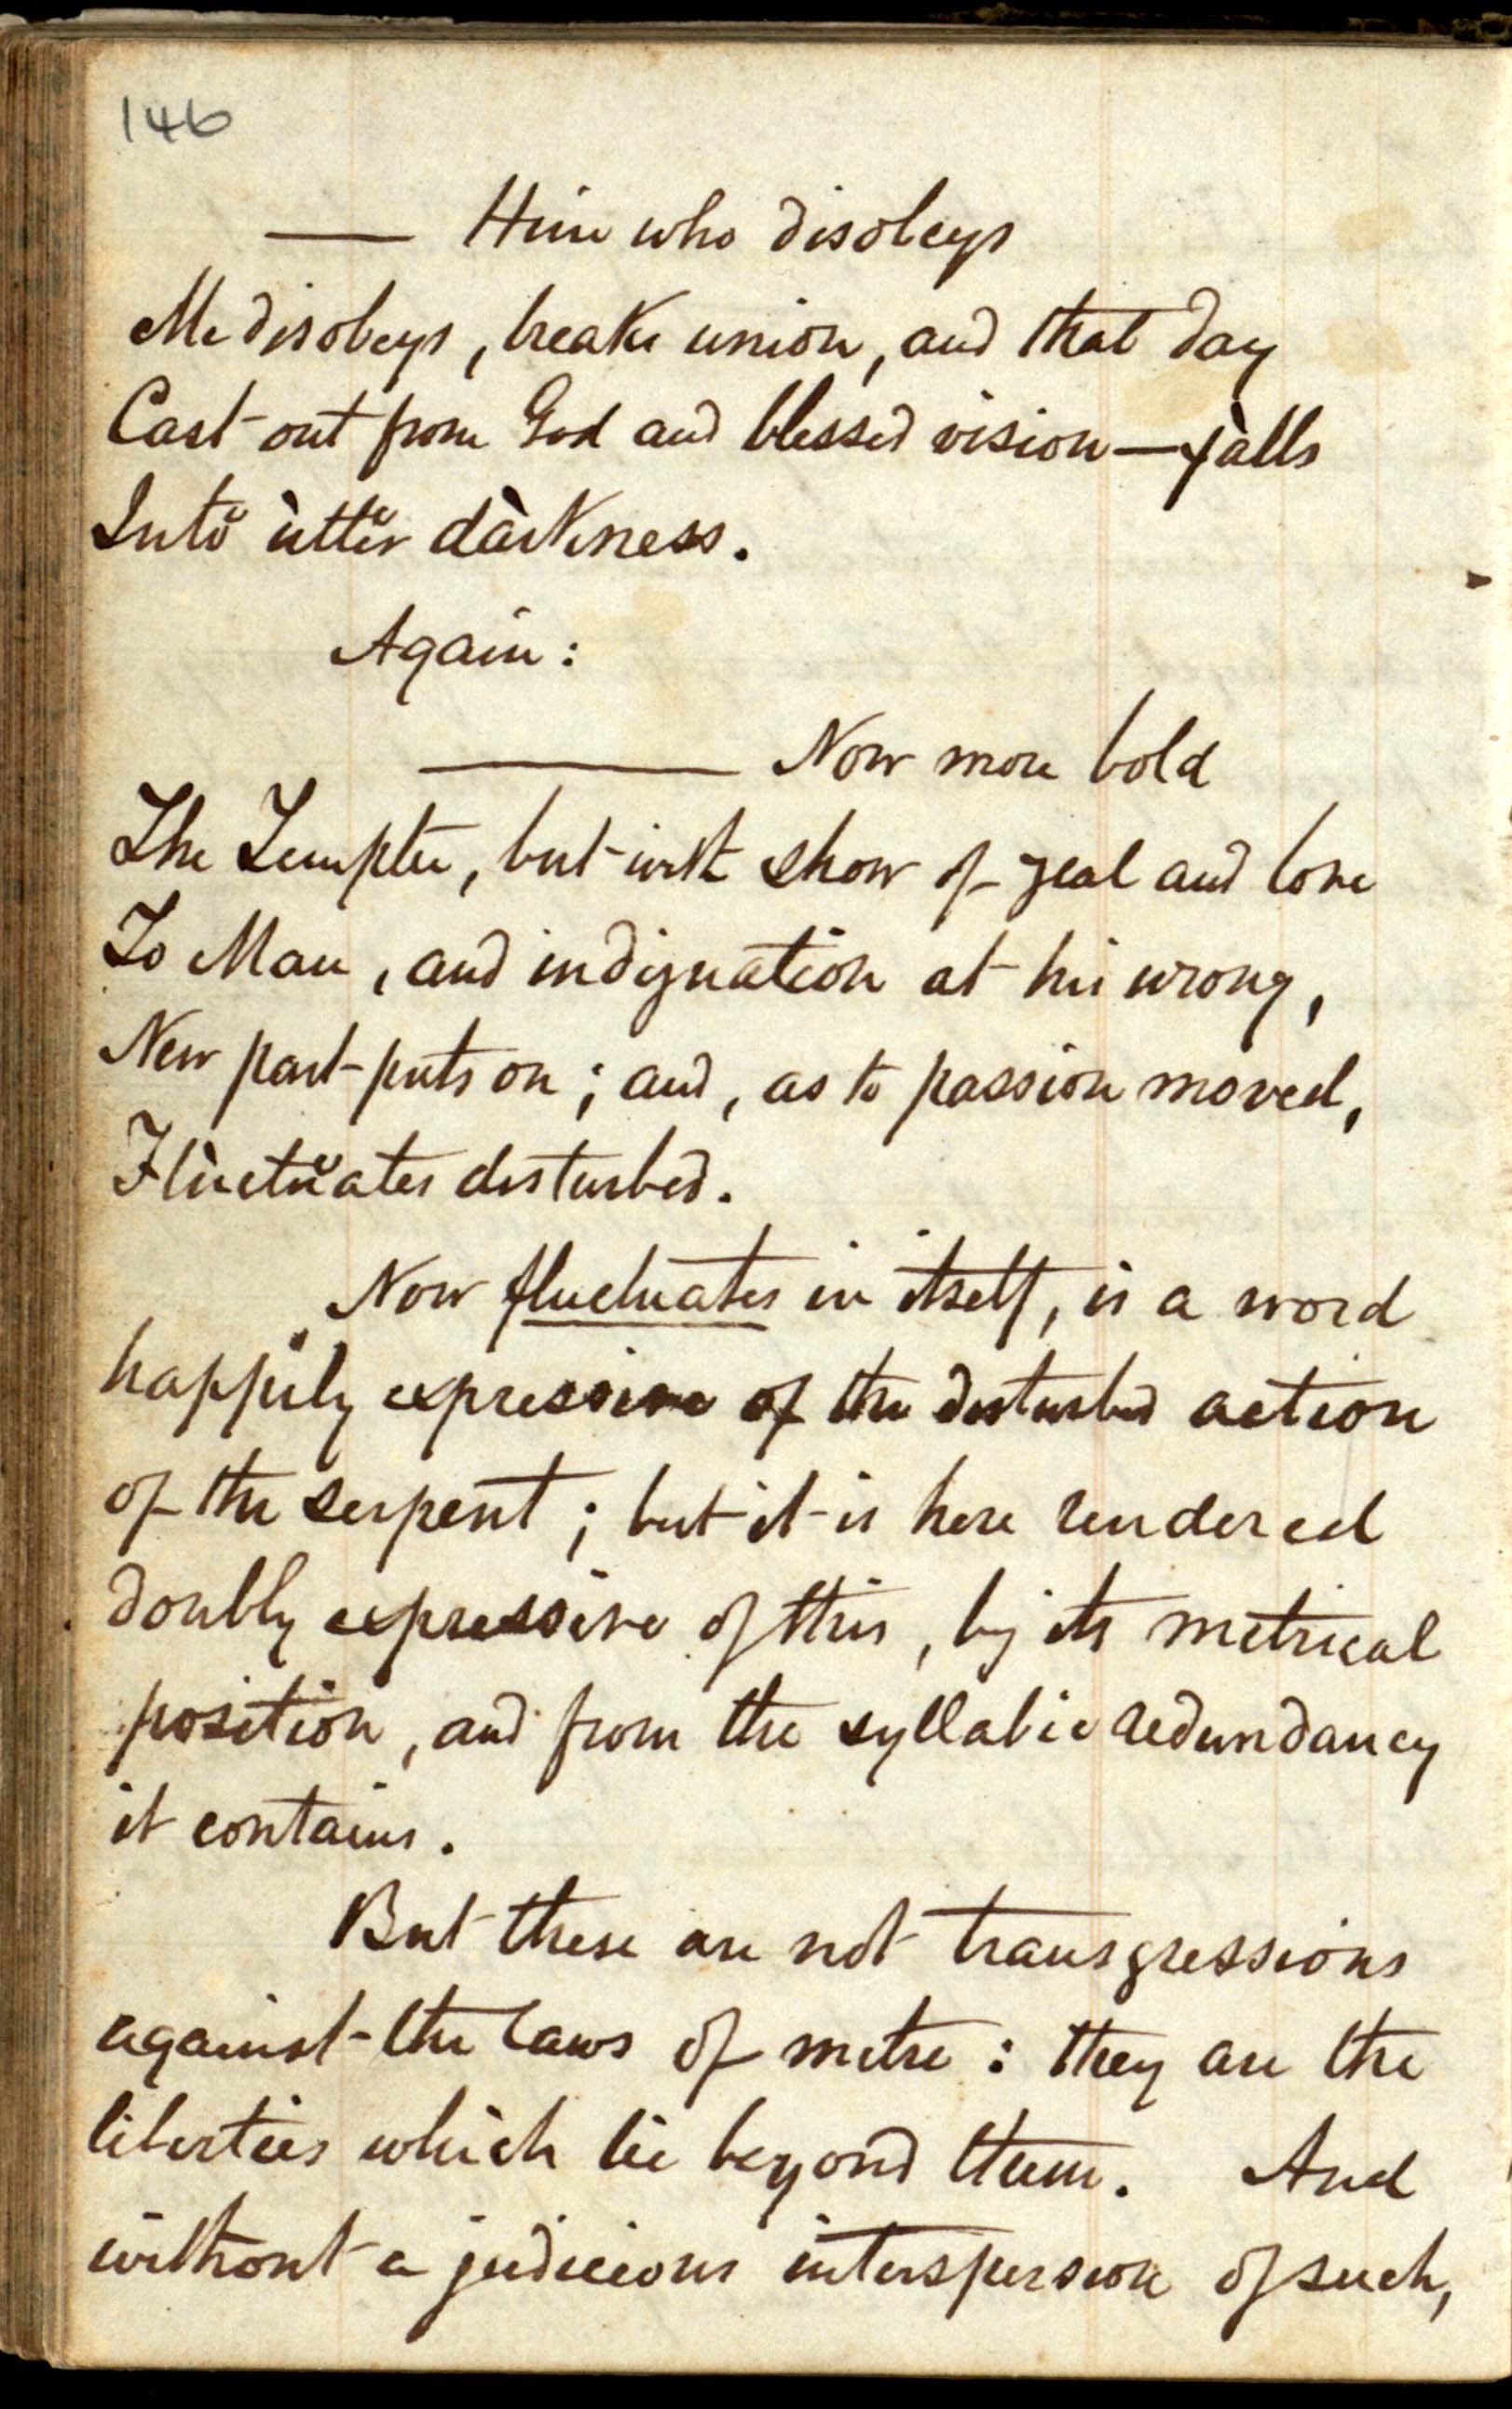 146
—— Him who disobeys
Me disobeys, breaks union, and that day
Cast out from God and blessed vision — fàlls
Intŏ ùttĕr dàrkness.
Again:
——— Now more bold
The Tempter, but with show of zeal and love
To Man, and indignation at his wrong,
New part puts on; and, as to passion moved,
Flùctŭates disturbed.
Now fluctuates in itself, is a word
happily expressive of the disturbed action
of the serpent; but it is here rendered
doubly expressive of this, by its metrical
position, and from the syllabic redundancy
it contains.
But these are not transgressions
against the laws of metre: they are the
liberties which lie beyond them. And
without a judicious interspersion of such,